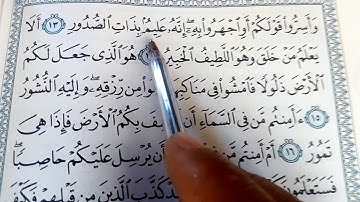 وَأَسِرُّوا۟ قَوْلَكُمْ أَوِ ٱجْهَرُوا۟ بِهِۦٓ ۖ إِنَّهُۥ عَلِيمٌۢ بِذَاتِ ٱلصُّدُورِ ١٣ أَلَا
يَعْلَمُ مَنْ خَلَقَ وَهُوَ ٱللَّطِيفُ ٱلْخَبِيرُ هُوَ ٱلَّذِى جَعَلَ لَكُمُ
ٱلْأَرْضَ ذَلُولًا فَٱمْشُوا۟ فِى مَنَاكِبِهَا مِن رِّزْقِهِۦ ۖ وَإِلَيْهِ ٱلنُّشُورُ
١٥ ءَأَمِنتُم مَّن فِى ٱلسَّمَآءِ أَن بِكُمُ ٱلْأَرْضَ فَإِذَا هِىَ
تَمُورُ ١٦ أَمْ أَمِنتُم مَّن أَن يُرْسِلَ عَلَيْكُمْ حَاصِبًا ۖ
فَسَتَعْلَمُونَ كَذَّبَ ٱلَّذِينَ مِن قَبْلِهِمْ فَكَيْفَ